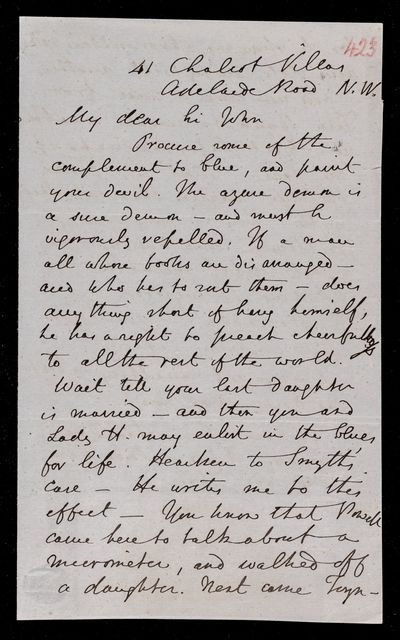 423
41 Chalcot Villas
Adelaide Road N.W.
My dear Sir John
Procure some of the
complement to blue, and paint
your devil. The azure demon is
a sure demon – and must be
vigorously repelled. If a man
all whose books are disarranged –
and who has to sort them – does
any thing short of hang himself,
he has a right to preach cheerfulness
to all the rest of the world.
Wait till your last daughter
is married – and then you and
Lady H. may enlist in the blues
for life. Hearken to Smyth's
case – He writes me to this
effect – You know that Powell
came here to talk about a
micrometer, and walked off
a daughter. Next came Toyn-